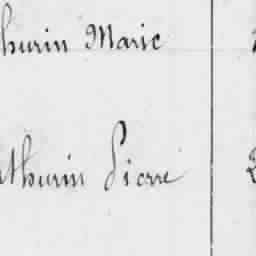 hurin Marie
thurin Pierre